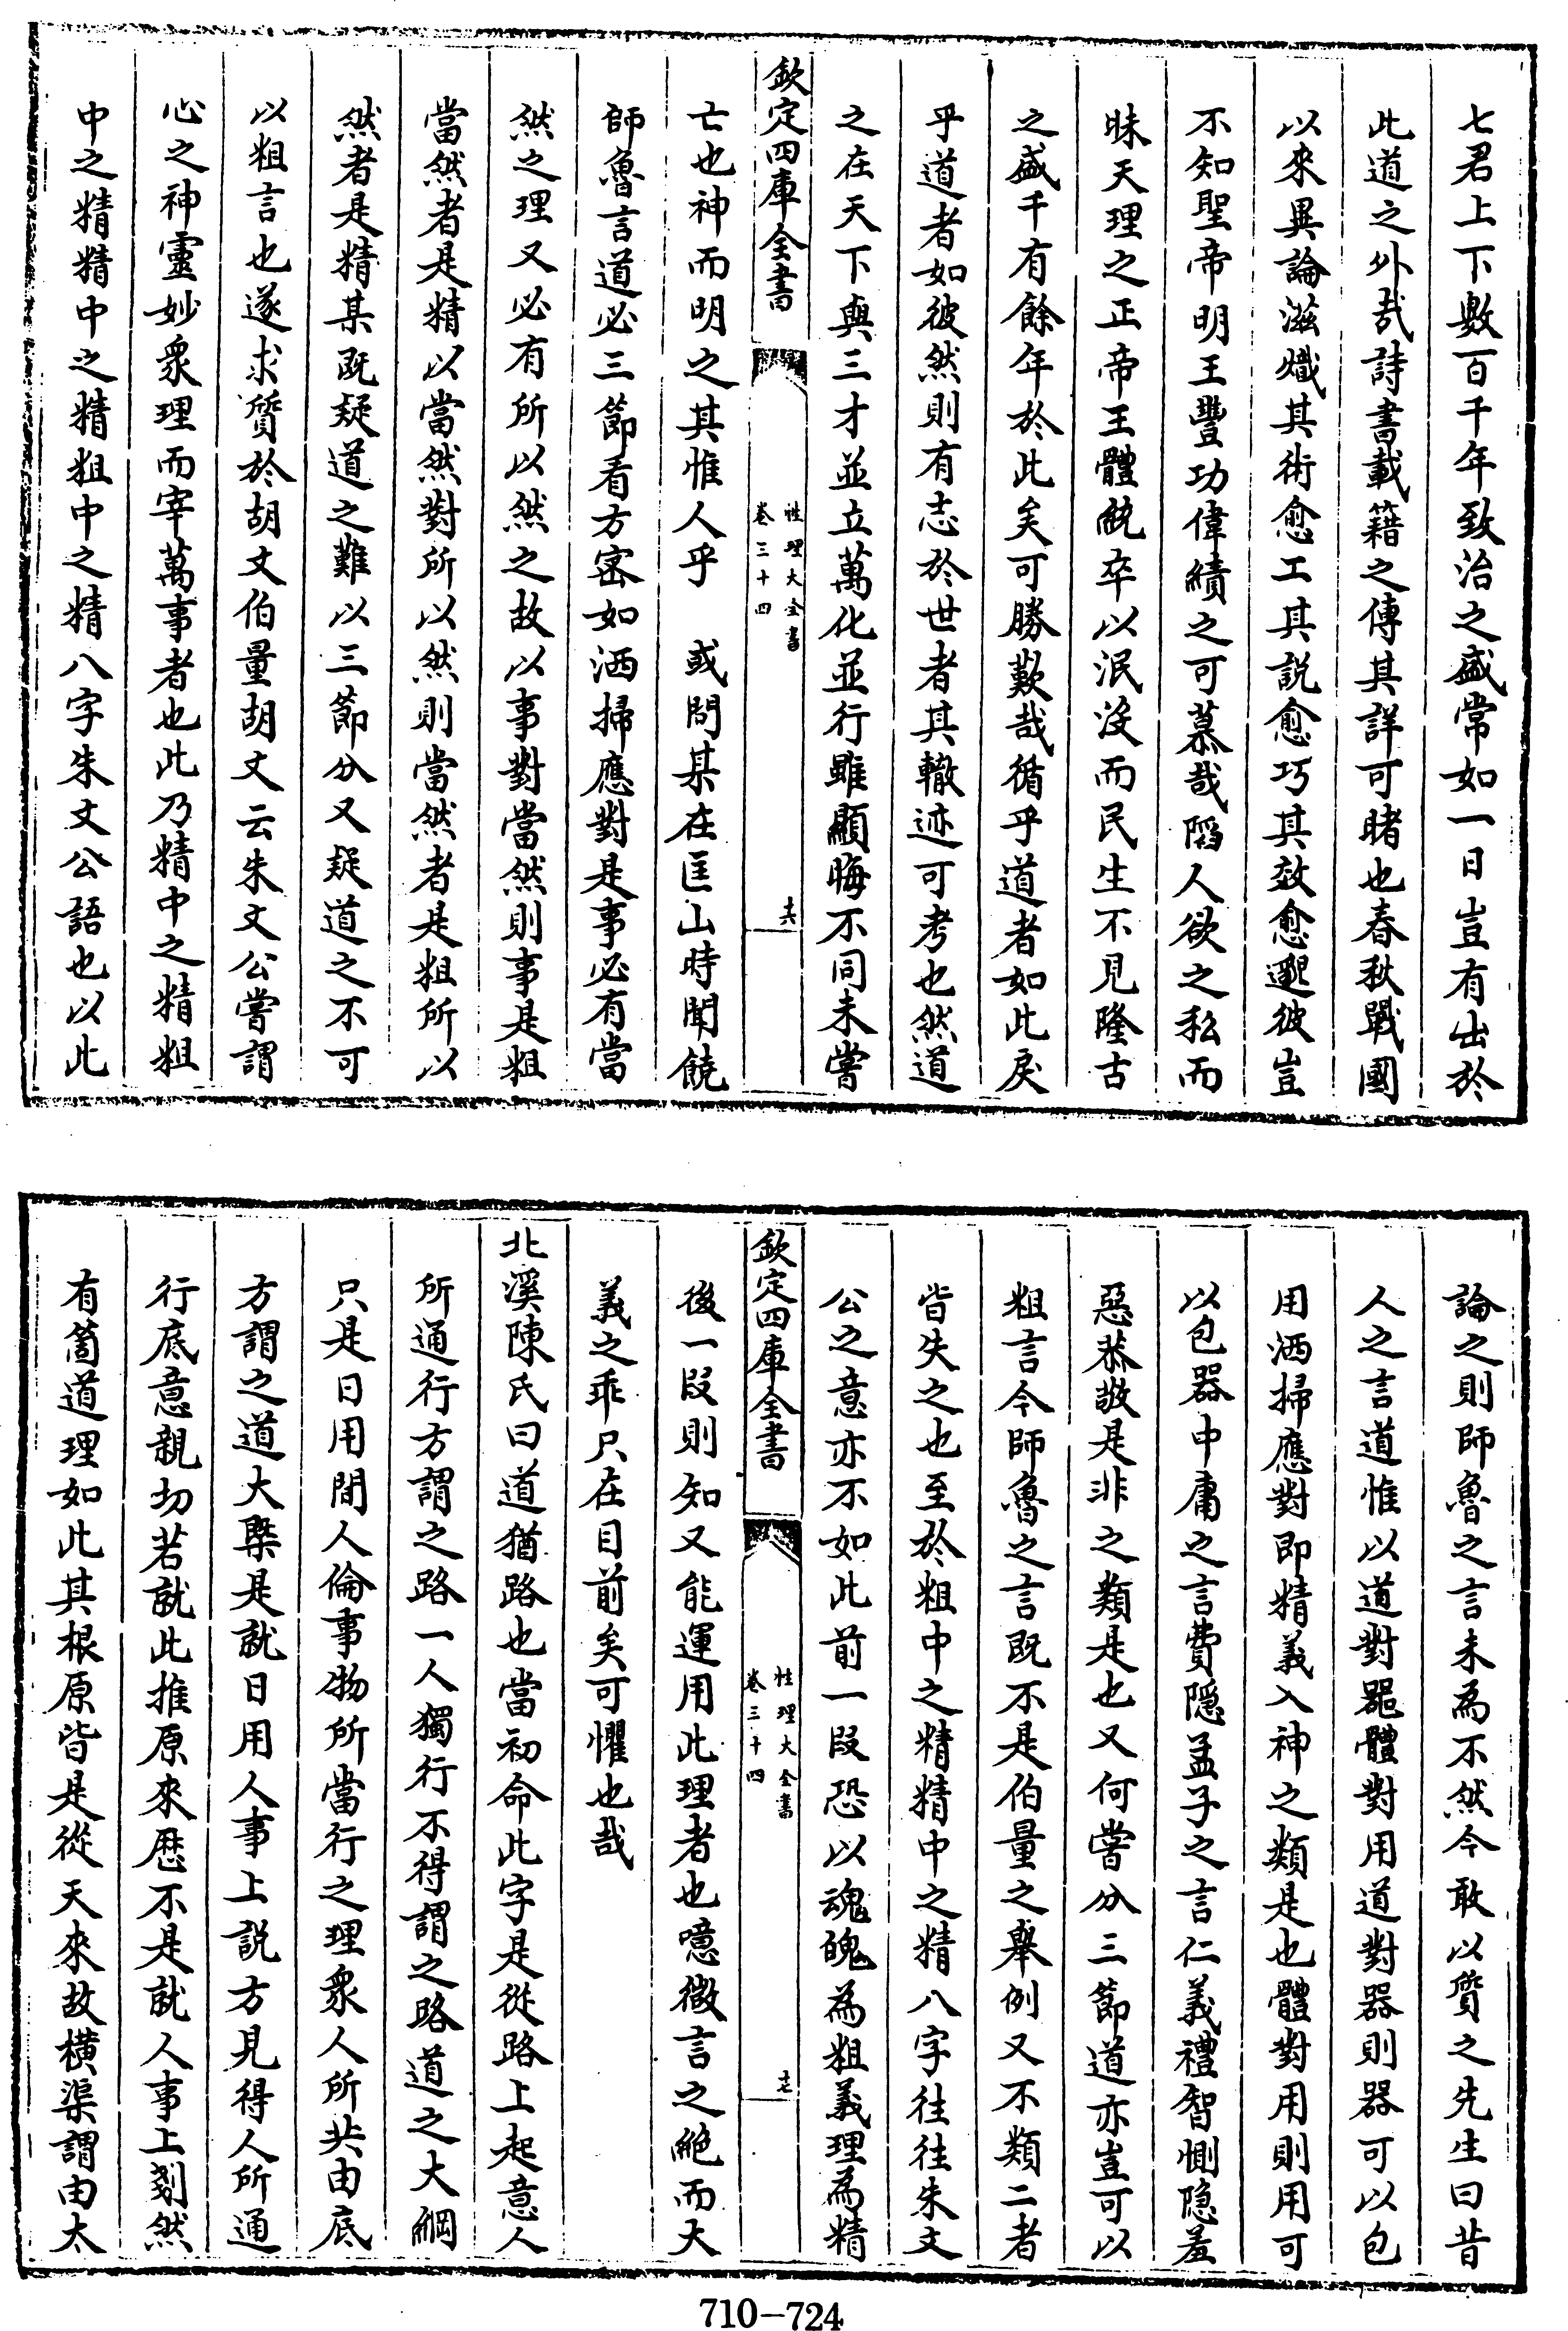 七君上下數百千年致治之盛常如一日豈有出於
此道之外哉詩書載籍之傳其詳可睹也春秋戰國
以來異論滋熾其術愈工其説愈巧其效愈邈彼豈
不知聖帝明王豐功偉績之可慕哉陷人欲之私而
昧天理之正帝王體統卒以泯沒而民生不見隆古
之盛千有餘年於此矣可勝歎哉循乎道者如此戾
乎道者如彼然則有志於世者其轍迹可考也然道
之在天下與三才並立萬化並行雖顯晦不同未嘗
欽定四庫全書
性理大全書
卷三十四
十六
亡也神而明之其惟人乎　或問某在匡山時聞饒
師魯言道必三節看方密如洒掃應對是事必有當
然之理又必有所以然之故以事對當然則事是粗
當然者是精以當然對所以然則當然者是粗所以
然者是精某既疑道之難以三節分又疑道之不可
以粗言也遂求質於胡文伯量胡文云朱文公嘗謂
心之神靈妙衆理而宰萬事者也此乃精中之精粗
中之精精中之精粗中之精八字朱文公語也以此
論之則師魯之言未為不然今敢以質之先生曰昔
人之言道惟以道對器體對用道對器則器可以包
用洒掃應對即精義入神之類是也體對用則用可
以包器中庸之言費隱孟子之言仁義禮智惻隐羞
惡恭敬是非之類是也又何嘗分三節道亦豈可以
粗言今師魯之言既不是伯量之舉例又不類二者
皆失之也至於粗中之精精中之精八字往往朱文
公之意亦不如此前一段恐以魂魄為粗義理為精
欽定四庫全書
性理大全書
卷三十四
十七
後一段則知又能運用此理者也噫微言之絶而大
義之乖只在目前矣可懼也哉
北溪陳氏曰道猶路也當初命此字是從路上起意人
所通行方謂之路一人獨行不得謂之路道之大綱
只是日用間人倫事物所當行之理衆人所共由底
方謂之道大槩是就日用人事上説方見得人所通
行底意親切若就此推原來歴不是就人事上剗然
有箇道理如此其根原皆是從天來故橫渠謂由太
710-724